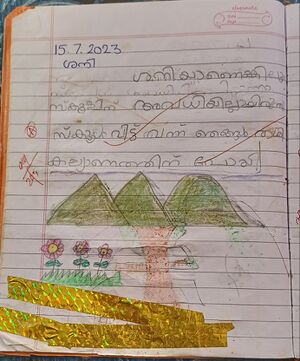 15.7.2023
ശനി
ശനിയാണെങ്കിലും
സ്കൂളിന് അവധിയില്ലായിരുന്നു
സ്കൂൾ വിട്ട് വന്ന് ഞങ്ങൾ
കല്യാണത്തിന് പോയി